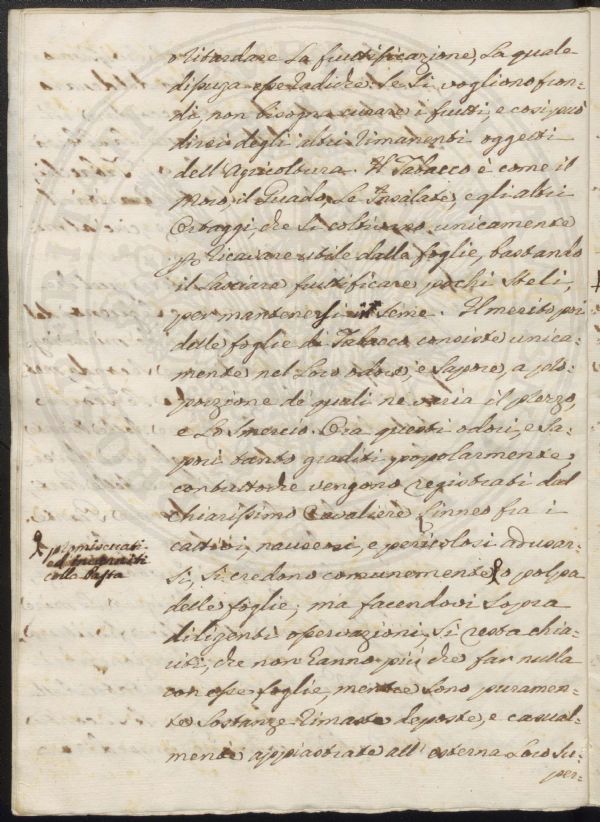 ritardare la fruttificazione, la quale
di poi a esse radiche: se si vogliono fron=
di, non bisogna curare i frutti, e così può
dirsi degli altri rimanenti oggetti
dell'Agricoltura. Il Tabacco è come il
Moro, il Guado, le Insalate, e gli altri
Ortaggi, che si coltivano unicamente
p ricavare utile dalle foglie, bastando
il lasciare fruttificare pochi steli,
per mantenersi il seme. Il merito poi
delle foglie di Tabacco consiste unica=
mente nel loro odore, e sapore, a pro=
porzione de quali ne varia il prezzo,
e lo smercio. Ora questi odori, e sa=
pori tanto graditi popolarmente,
contuttoche vengono registrati dal
chiarissimo Cavaliere Linneo fra i
cattivi, nauseosi, e pericolosi ad usar=
si, si credono comunemente o polpa
promiscuati
ed
colla Pasta
delle foglie; ma facendovi sopra
diligenti osservazioni, si resta chia=
riti, che non hanno più che far nulla
con esse foglie, mentre sono puramen=
te sostanze rimaste deposte, e casual=
mente appiastrate all'esterna loro su=
per=